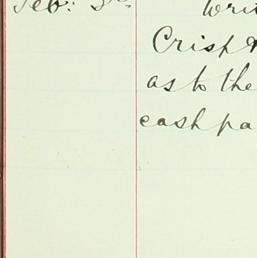 Feb: 3rd. Writ
Crisp &
as to the
cash pa